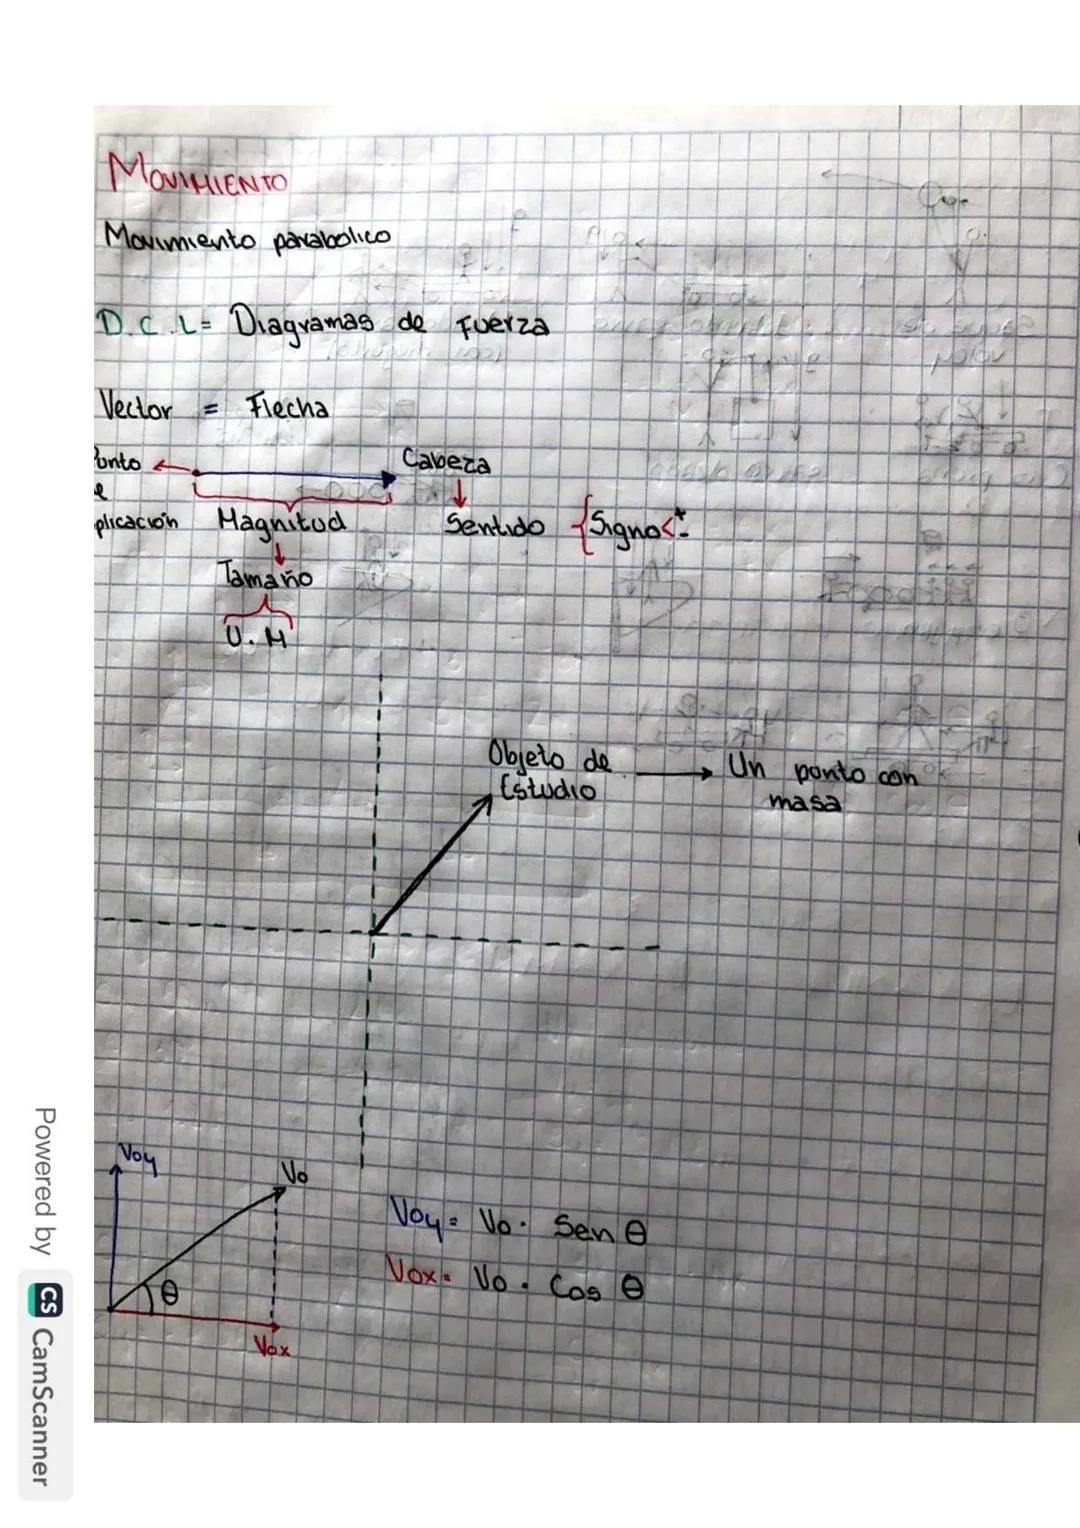 MOVIMIENTO
Movimiento parabolico
D.C.L= Diagramas de Fuerza
Vector = Flecha
Punto
Cabeza
e
plicación
Magnitud
Sentido {Signo< + -
Tamaño
U.M
Objeto de
Estudio
Un punto con
masa
Voy
Vo
Voy= Vo. Sen θ
Vox= Vo. Cos θ
θ
Vox
Powered by CS CamScanner